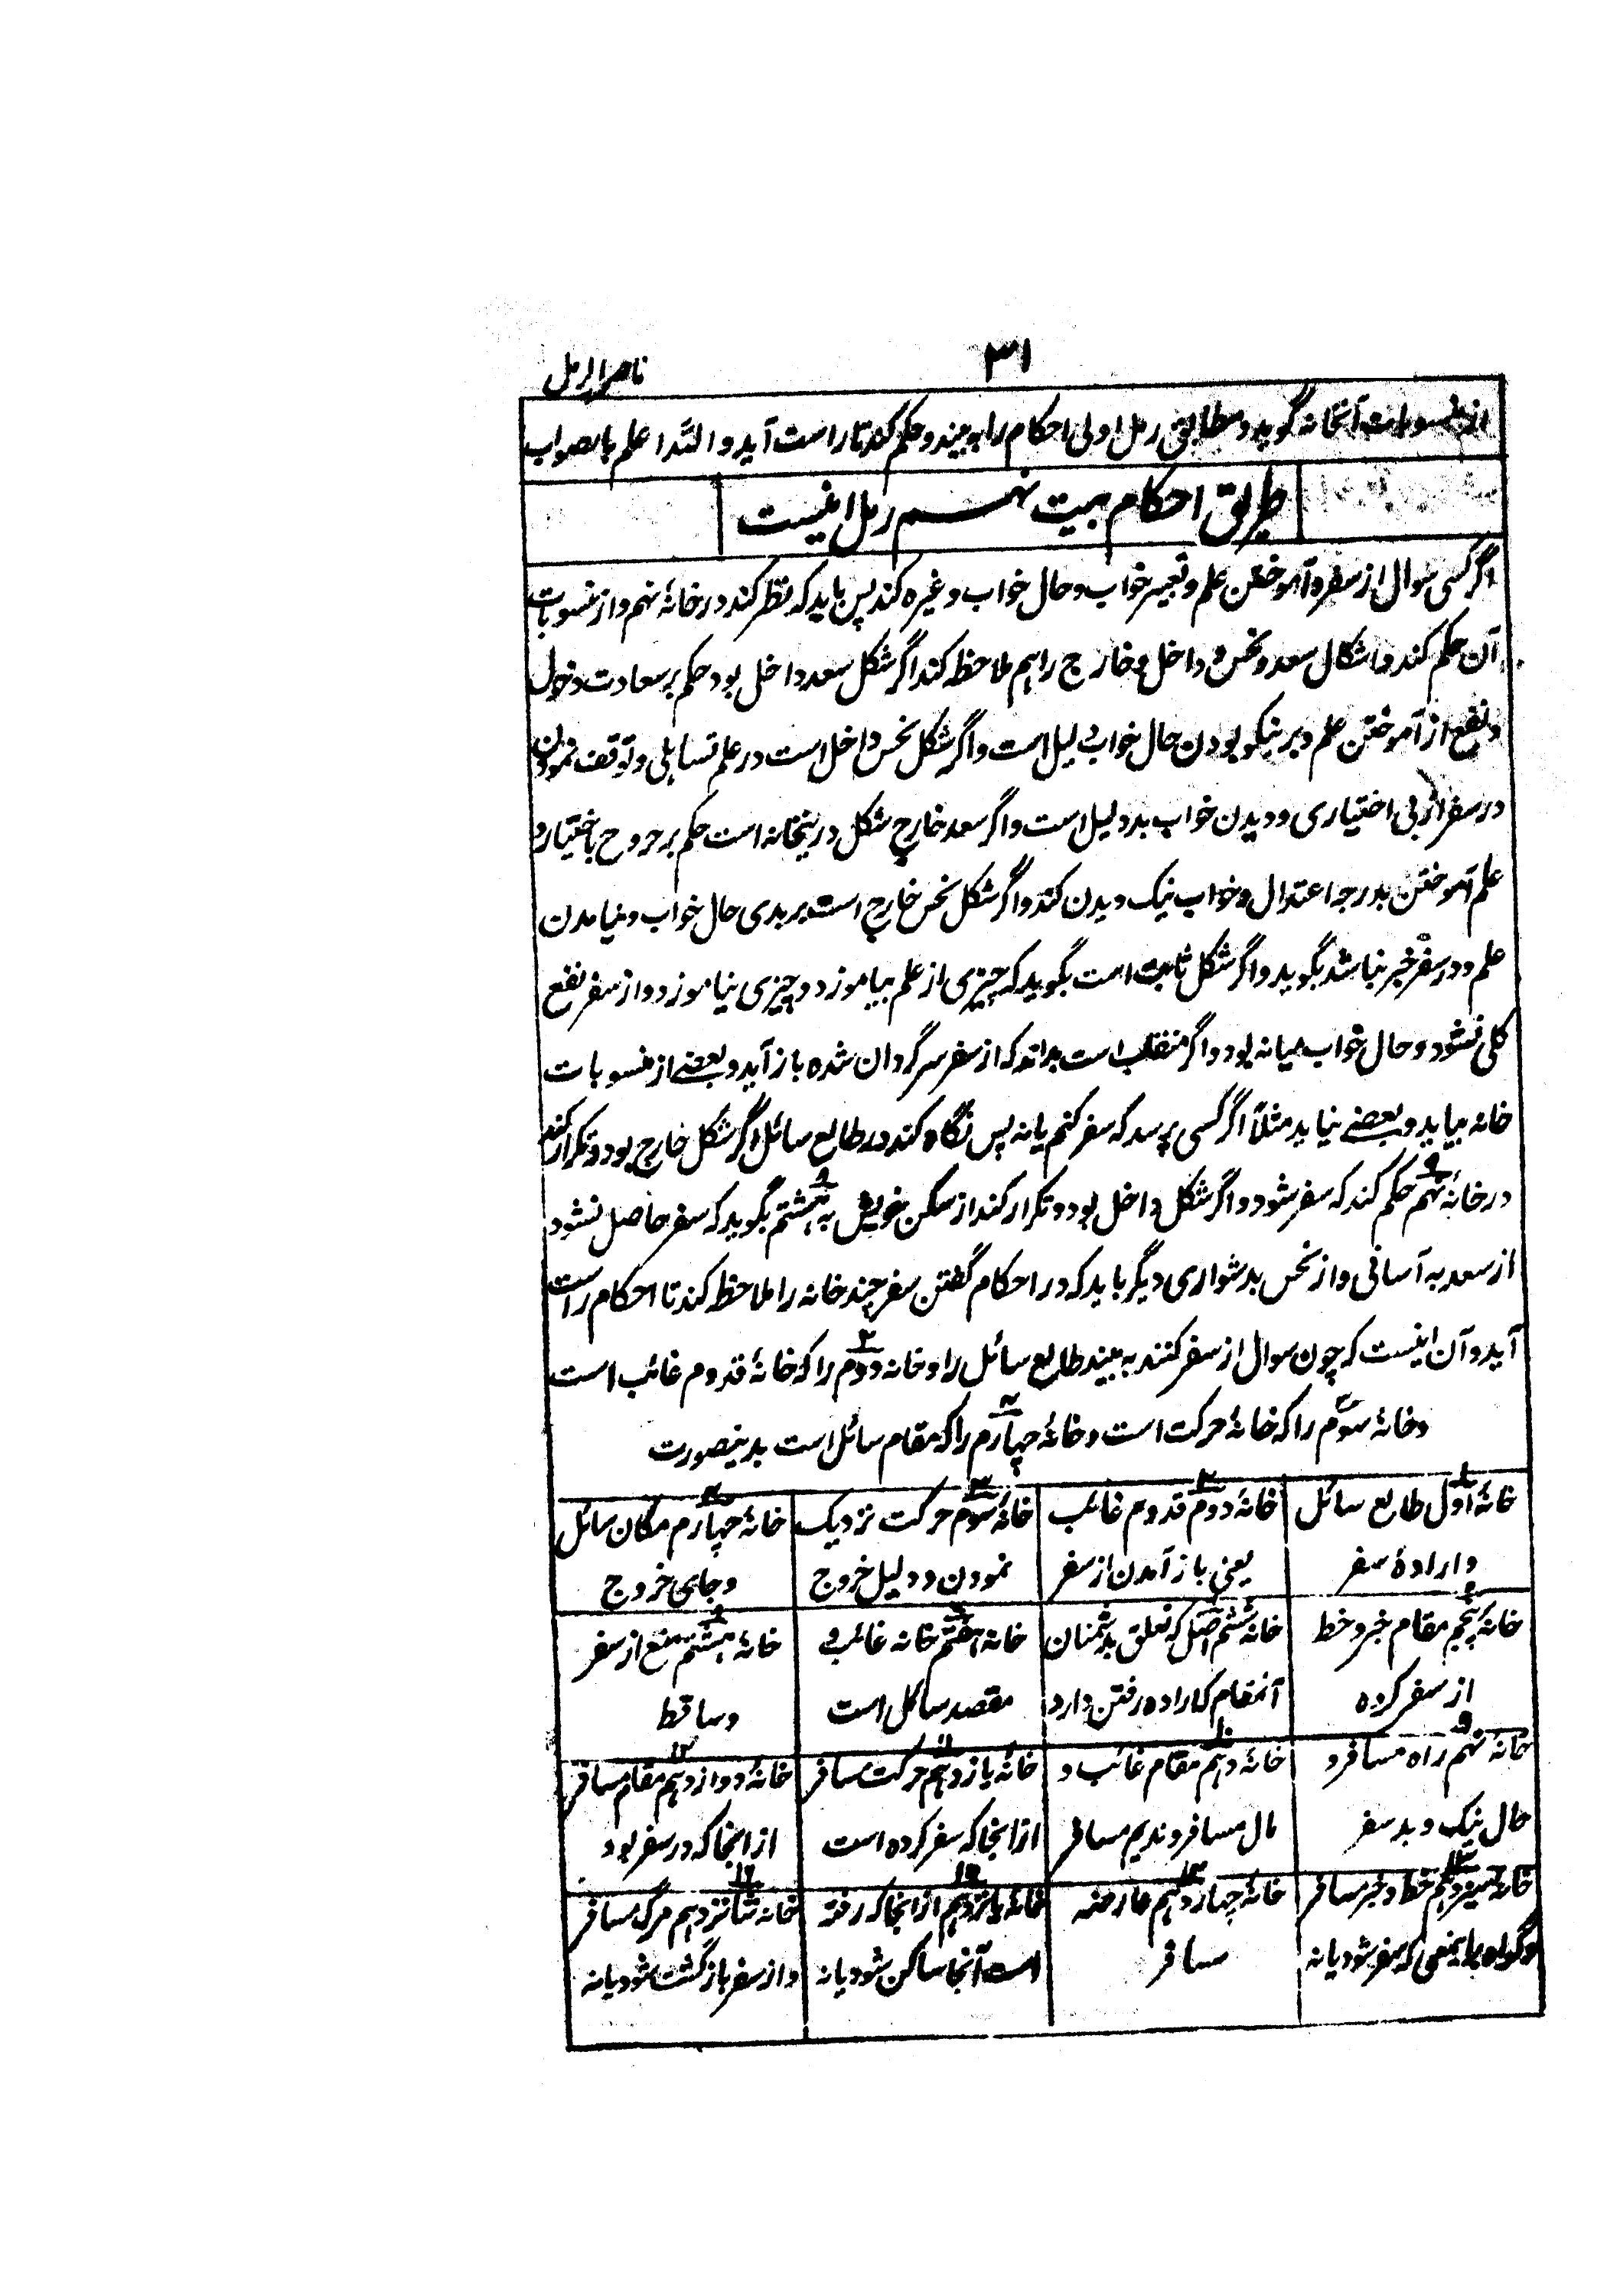 ۳۱
ناصر الرمل
از منسوبات آنخانه گوید و مطابق رمل اولی احکام را به بیند و حکم کند تا راست آید واللّه اعلم بالصواب
طریق احکام بیت نهم رمل اینست
اگر کسی سوال از سفر و آموختن علم و تعبیر خواب و حال خواب و غیره کند پس باید که نظر کند در خانهٔ نهم و از منسوبات
آن حکم کند و اشکال سعد و نحس و داخل و خارج را هم ملاحظه کند اگر شکل سعد داخل بود حکم بر سعادت دخول
و نفع از آموختن علم و بر نیکو بودن حال خواب دلیل است و اگر شکل نحس داخل است در علم تساهلی و توقف نمودن
در سفر از بی اختیاری و دیدن خواب بد دلیل است و اگر سعد خارج شکل درینخانه است حکم بر خروج باختیار و
علم آموختن بدرجه اعتدال و خواب نیک دیدن کند و اگر شکل نحس خارج است بر بدی حال خواب و نیامدن
علم و در سفر خیر نباشد بگوید و اگر شکل ثابت است بگوید که چیزی از علم بیاموزد و چیزی نیاموزد و از سفر نفع
کلی نشود و حال خواب میانه بود و اگر منقلب است بداند که از سفر سرگردان شده باز آید و بعضے از منسوبات
خانه بیاید و بعضے نیاید مثلاً اگر کسی پرسد که سفر کنم یا نه پس نگاه کند در طالع سائل اگر شکل خارج بود و تکرار کند
در خانهٔ نهم ۹ حکم کند که سفر شود و اگر شکل داخل بود و تکرار کند از مسکن خویش به هشتم ۸ بگوید که سفر حاصل نشود
از سعد به آسانی و از نحس بدشواری دیگر باید که در احکام گفتن سفر چند خانه را ملاحظه کند تا احکام راست
آید و آن اینست که چون سوال از سفر کنند به بیند طالع سائل را و خانه دوم ۲ را که خانهٔ قدوم غائب است
و خانهٔ سوم ۳ را که خانهٔ حرکت است و خانهٔ چهارم ۴ را که مقام سائل است بدینصورت
خانهٔ اول ۱ طالع سائل
و ارادهٔ سفر
خانهٔ دوم ۲ قدوم غائب
یعنی باز آمدن از سفر
خانهٔ سوم ۳ حرکت نزدیک
نمودن و دلیل خروج
خانهٔ چهارم ۴ مکان سائل
و جای خروج
خانهٔ پنجم ۵ مقام خبر و خط
از سفر کرده
خانهٔ ششم ۶ که تعلق بدشمنان
آنمقام که اراده رفتن دارد
خانهٔ هفتم ۷ خانه غائب و
مقصد سائل است
خانهٔ هشتم ۸ منع از سفر
و ساقط
خانهٔ نهم ۹ راه مسافر و
حال نیک و بد سفر
خانهٔ دهم ۱۰ مقام غائب و
مال مسافر و ندیم مسافر
خانهٔ یازدهم ۱۱ حرکت مسافر
از انجا که سفر کرده است
خانهٔ دوازدهم ۱۲ مقام مسافر
از انجا که در سفر بود
خانهٔ سیزدهم ۱۳ خط و خبر مسافر
و گواه براینمعنی که سفر شود یا نه
خانهٔ چهاردهم ۱۴ عارضه
مسافر
خانهٔ پانزدهم ۱۵ از انجا که رفته
است آنجا ساکن شود یا نه
خانهٔ شانزدهم ۱۶ مرگ مسافر
و از سفر بازگشت شود یا نه